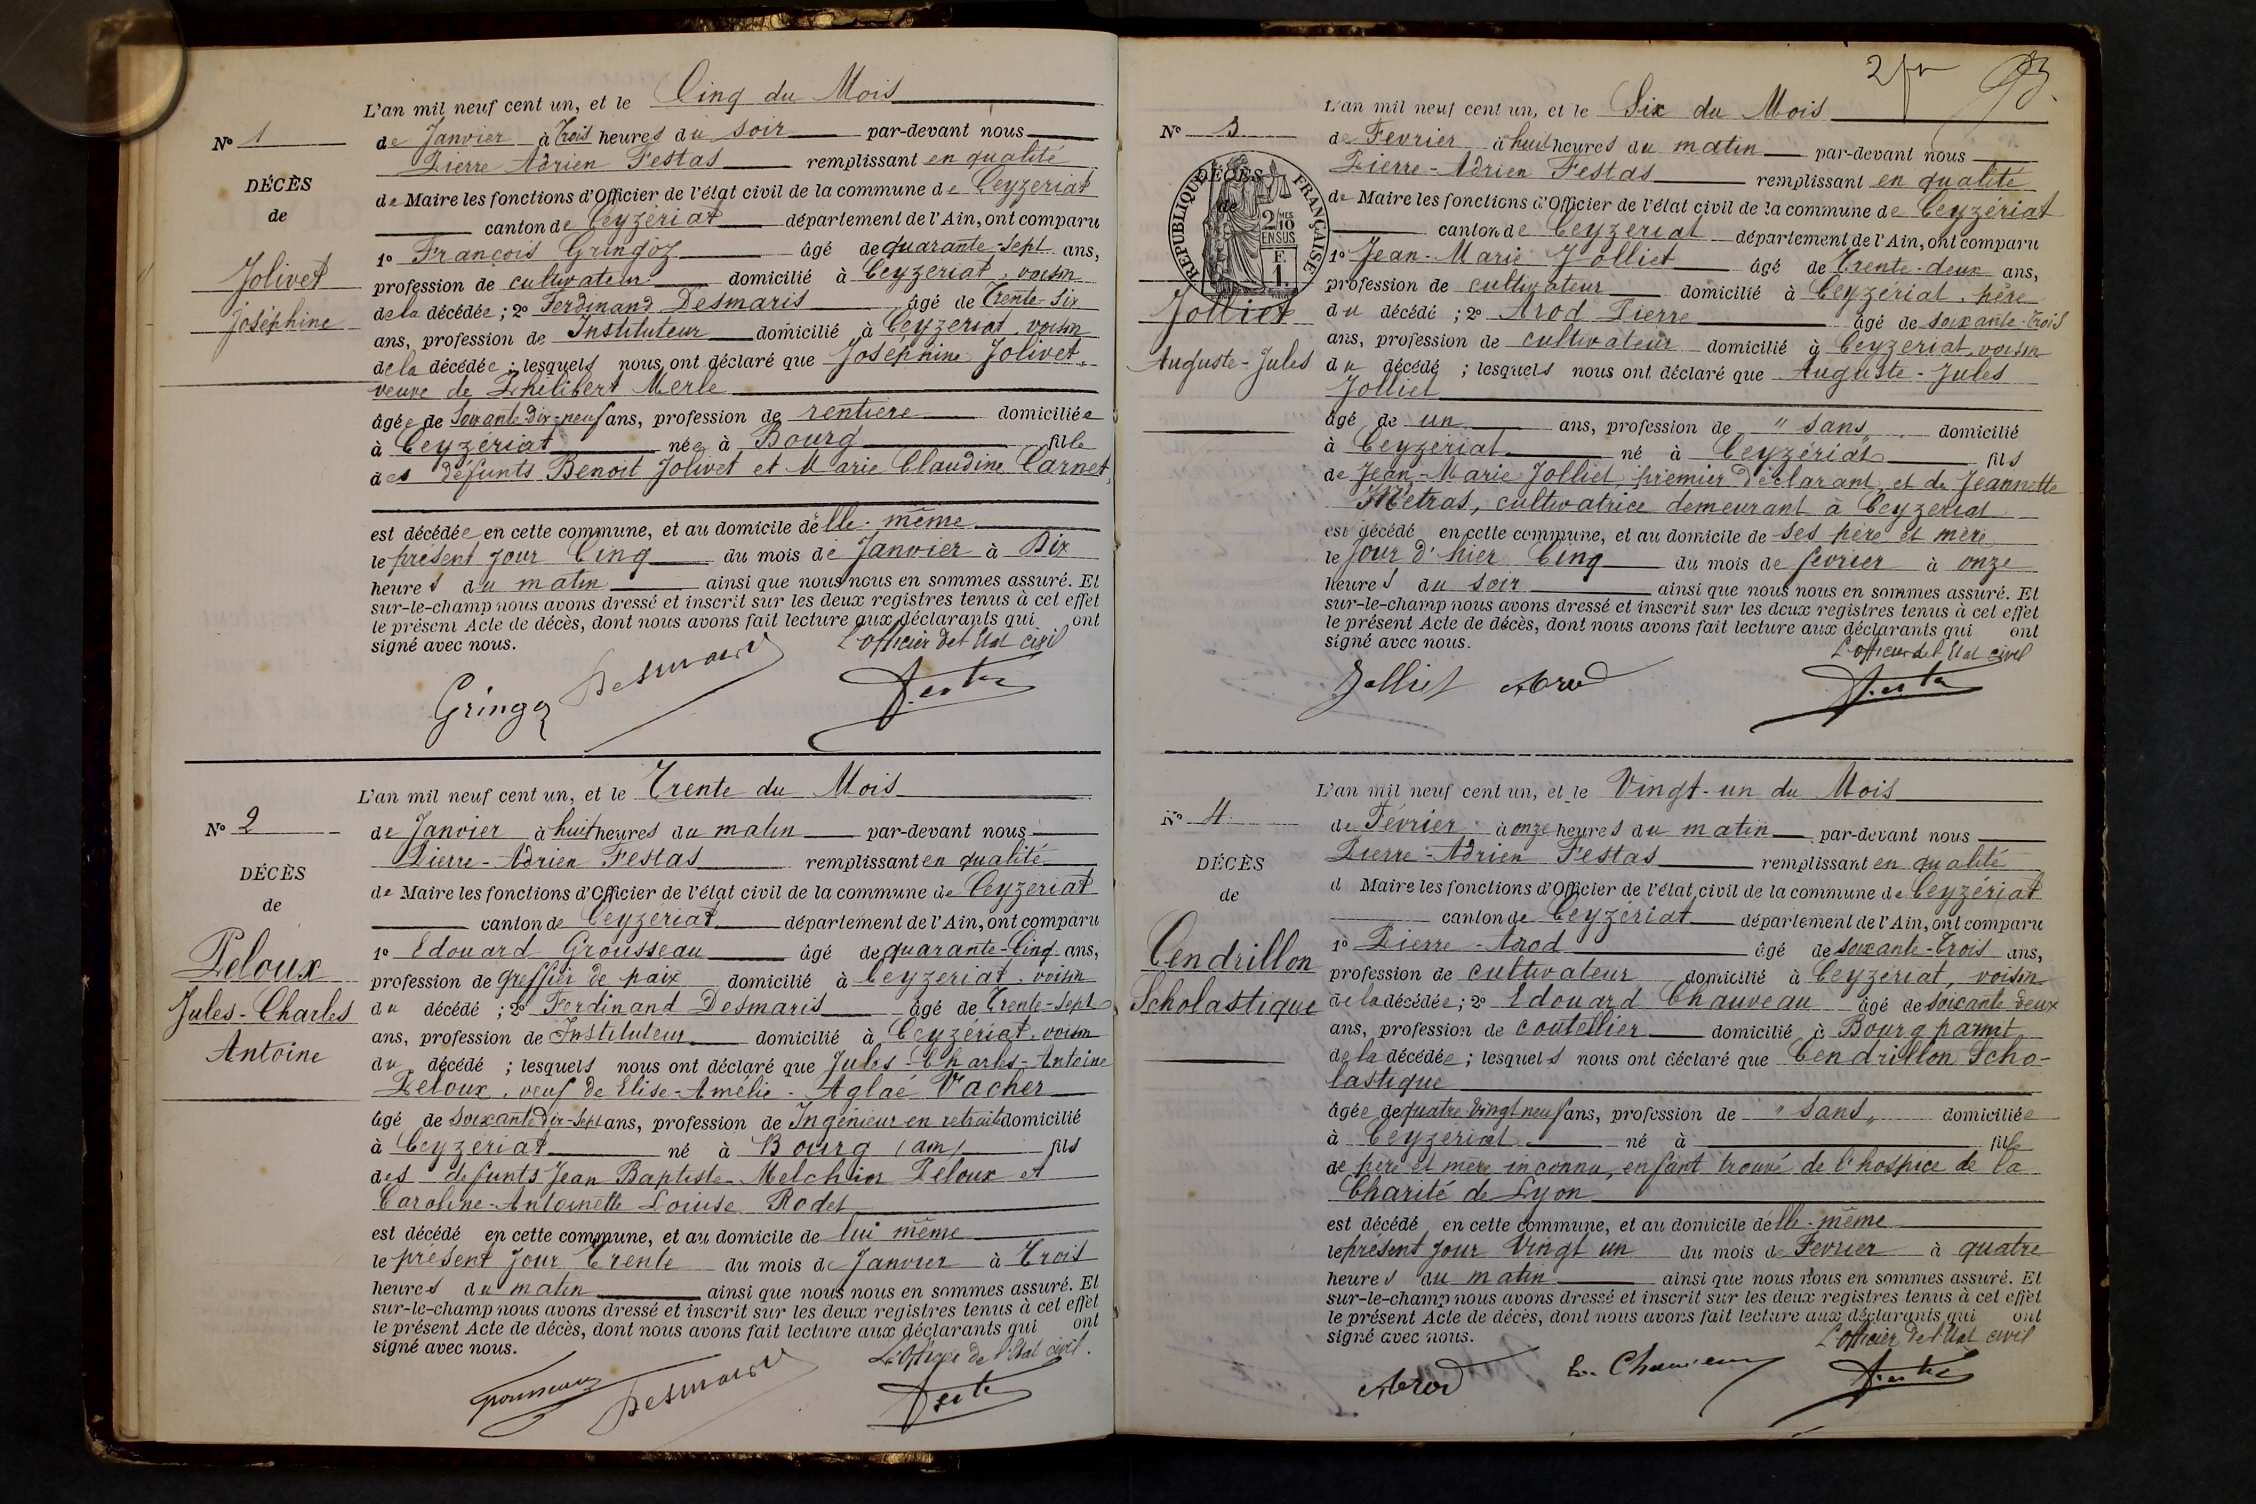 L'an mil neuf cent un, et le Cinq du Mois
N° 1
de Janvier à trois heures du soir par-devant nous
Pierre Adrien Festas remplissant en qualité
DÉCÈS
de Maire les fonctions d'Officier de l'état civil de la commune de Ceyzeriat
de
canton de Ceyzériat département de l'Ain, ont comparu
1° François Gringoz âgé de quarante-sept ans,
Jolivet
profession de cultivateur domicilié à Ceyzeriat, voisin
Joséphine
de la décédée ; 2° Ferdinand Desmaris âgé de Trente-six
ans, profession de Instituteur domicilié à Ceyzeriat, voisin
de la décédée ; lesquels nous ont déclaré que Joséphine Jolivet,
veuve de Philibert Merle
âgée de Soixante Dix-neuf ans, profession de rentière domiciliée
à Ceyzériat née à Bourg fille
des défunts Benoit Jolivet et Marie Claudine Carnet,
est décédée en cette commune, et au domicile d'elle-même
le présent jour Cinq du mois de Janvier à Dix
heures du matin ainsi que nous nous en sommes assuré. Et
sur-le-champ nous avons dressé et inscrit sur les deux registres tenus à cet effet
le présent Acte de décès, dont nous avons fait lecture aux déclarants qui ont
signé avec nous. L'officier de l'Etat civil
Gringoz Desmaris Festas
L'an mil neuf cent un, et le Trente du Mois
N° 2
de Janvier à huit heures du matin par-devant nous
Pierre-Adrien Festas remplissant en qualité
DÉCÈS
de Maire les fonctions d'Officier de l'état civil de la commune de Ceyzeriat
de
canton de Ceyzériat département de l'Ain, ont comparu
1° Edouard Grousseau âgé de quarante-Cinq ans,
Peloux
profession de greffier de paix domicilié à Ceyzeriat, voisin
Jules-Charles
du décédé ; 2° Ferdinand Desmaris âgé de Trente-sept
ans, profession de Instituteur domicilié à Ceyzériat, voisin
Antoine
du décédé ; lesquels nous ont déclaré que Jules-Charles-Antoine
Peloux, veuf de Elise-Amélie-Aglaé Vacher
âgé de Soixante Dix-sept ans, profession de Ingénieur en retraite domicilié
à Ceyzeriat né à Bourg (Ain) fils
des defunts Jean Baptiste Melchior Peloux et
Caroline-Antoinette Louise Rodet
est décédé en cette commune, et au domicile de lui même
le présent jour Trente du mois de Janvier à Trois
heures du matin ainsi que nous nous en sommes assuré. Et
sur-le-champ nous avons dressé et inscrit sur les deux registres tenus à cet effet
le présent Acte de décès, dont nous avons fait lecture aux déclarants qui ont
signé avec nous. L'Officier de l'Etat civil.
Grousseau Desmaris Festas
L'an mil neuf cent un, et le Six du Mois
N° 3
de Fevrier à huit heures du matin par-devant nous
Pierre-Adrien Festas remplissant en qualité
DÉCÈS
de
RÉPUBLIQUE FRANÇAISE
2 MES 10 EN SUS
F. 1.
de Maire les fonctions d'Officier de l'état civil de la commune de Ceyzériat
canton de Ceyzeriat département de l'Ain, ont comparu
1° Jean-Marie Jolliet âgé de Trente-deux ans,
profession de cultivateur domicilié à Ceyzériat, père
Jolliet
du décédé ; 2° Arod Pierre âgé de soixante-Trois
ans, profession de cultivateur domicilié à Ceyzeriat, voisin
Auguste-Jules
du décédé ; lesquels nous ont déclaré que Auguste-Jules
Jolliet
âgé de un ans, profession de " sans " domicilié
à Ceyzériat né à Ceyzériat fils
de Jean-Marie Jolliet, premier Déclarant, et de Jeannette
Métras, cultivatrice demeurant à Ceyzeriat
est décédé en cette commune, et au domicile de ses père et mère
le jour d'hier Cinq du mois de fevrier à onze
heures du soir ainsi que nous nous en sommes assuré. Et
sur-le-champ nous avons dressé et inscrit sur les deux registres tenus à cet effet
le présent Acte de décès, dont nous avons fait lecture aux déclarants qui ont
signé avec nous. L'officier de l'Etat civil
Jolliet Arod Festas
L'an mil neuf cent un, et le Vingt-un du Mois
N° 4
de Février à onze heures du matin par-devant nous
Pierre-Adrien Festas remplissant en qualité
DÉCÈS
d Maire les fonctions d'Officier de l'état civil de la commune de Ceyzériat
de
canton de Ceyzériat département de l'Ain, ont comparu
Cendrillon
1° Pierre-Arod âgé de soixante-trois ans,
profession de cultivateur domicilié à Ceyzériat, voisin
Scholastique
de la décédée ; 2° Edouard Chauveau âgé de soixante deux
ans, profession de coutellier domicilié à Bourg parmit
de la décédée ; lesquels nous ont déclaré que Cendrillon Scho-
lastique
âgée de quatre vingt neuf ans, profession de " sans " domiciliée
à Ceyzériat né à fille
de père et mère inconnu, enfant trouvé de l'hospice de la
Charité de Lyon
est décédé en cette commune, et au domicile d'elle-même
le présent jour Vingt un du mois de Fevrier à quatre
heures du matin ainsi que nous nous en sommes assuré. Et
sur-le-champ nous avons dressé et inscrit sur les deux registres tenus à cet effet
le présent Acte de décès, dont nous avons fait lecture aux déclarants qui ont
signé avec nous. L'Officier de l'Etat civil
Arod Ed. Chauveau Festas